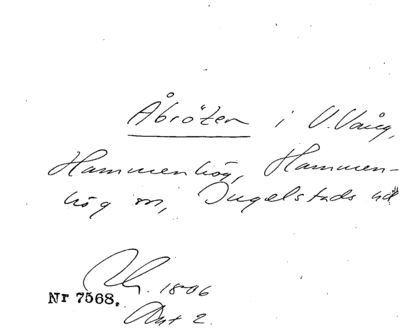 Åbröten i V. Vång,
Hammenhög, Hammen-
hög sn, Ingelstads hd
1806
Nr 7568.
Akt 2